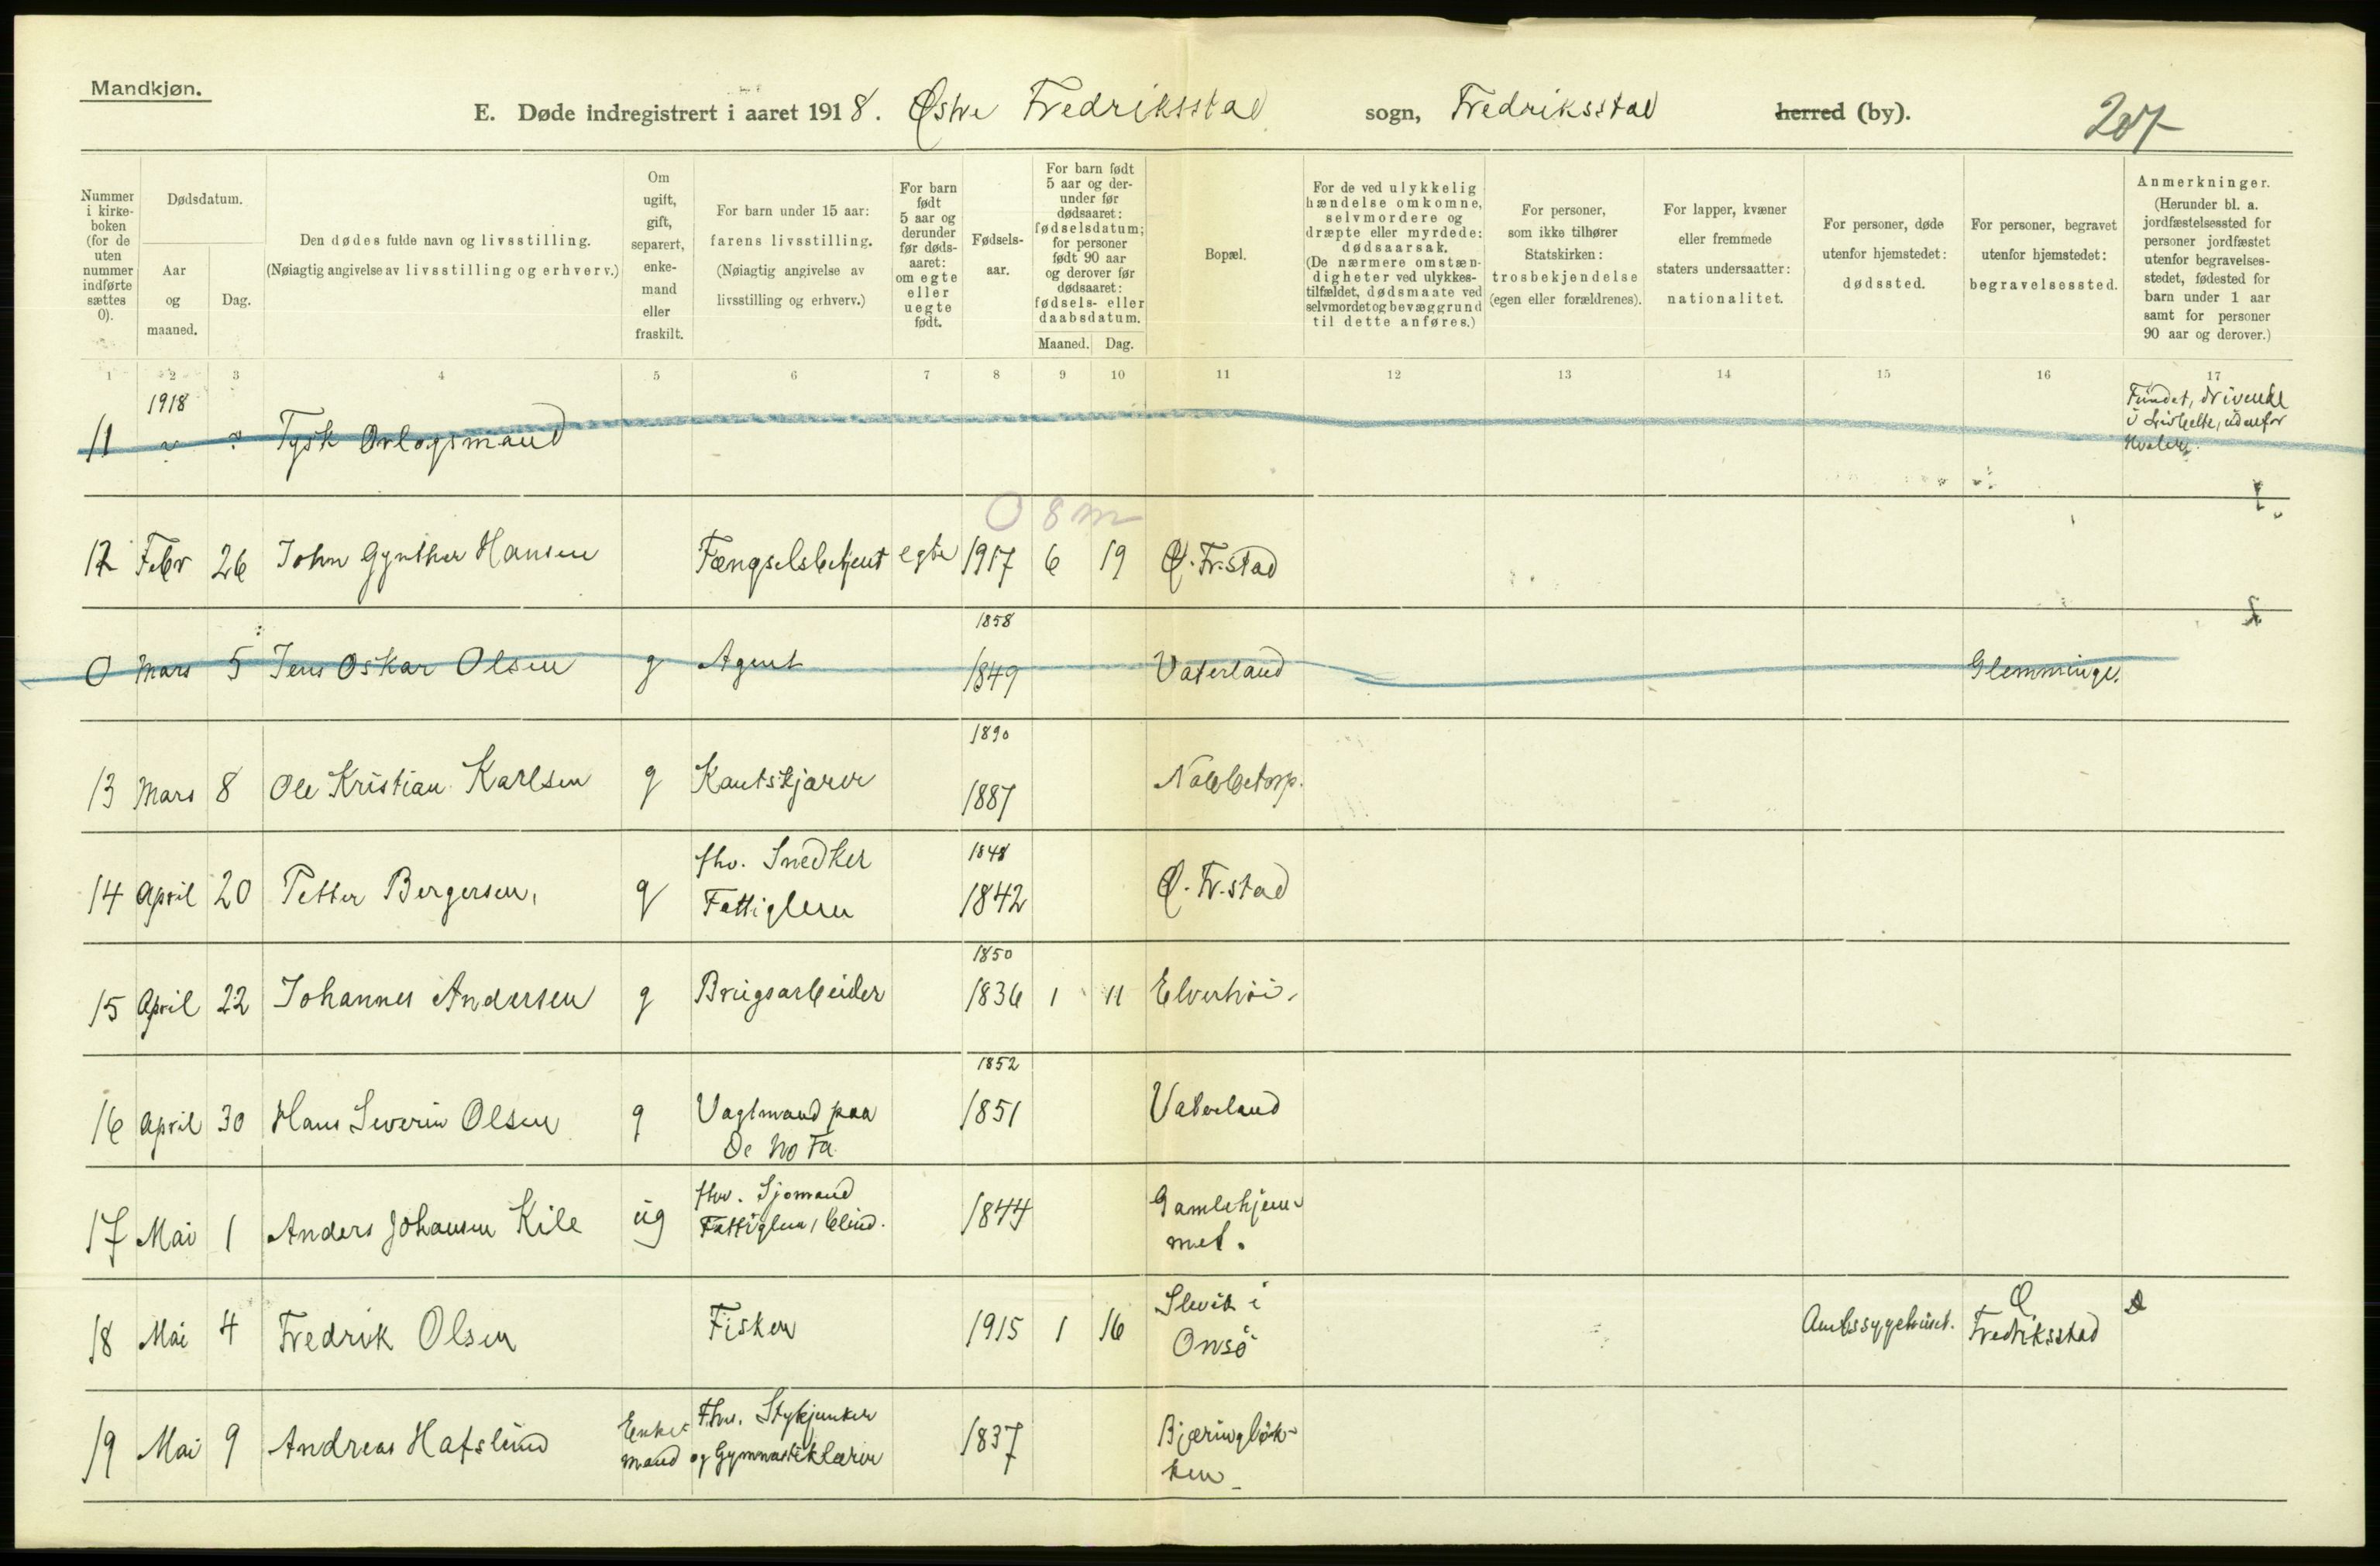 Mandkjøn.
E. Døde indregistrert i aaret 1918. Østre Fredriksstad sogn, Fredriksstad herred (by). 207
Nummer i kirke-boken (for de uten nummer indførte sættes 0).
Dødsdatum.
Aar og maaned.
Dag.
Den dødes fulde navn og livsstilling.
(Nøiagtig angivelse av livsstilling og erhverv.)
Om ugift, gift, separert, enke-mand eller fraskilt.
For barn under 15 aar: farens livsstilling.
(Nøiagtig angivelse av livsstilling og erhverv.)
For barn født 5 aar og derunder før døds-aaret: om egte eller uegte født.
Fødsels-aar.
For barn født 5 aar og der-under før dødsaaret: fødselsdatum; for personer født 90 aar og derover før dødsaaret: fødsels- eller daabsdatum.
Maaned. Dag.
Bopæl.
For de ved ulykkelig hændelse omkomne, selvmordere og dræpte eller myrdede: dødsaarsak.
(De nærmere omstæn-digheter ved ulykkes-tilfældet, dødsmaate ved selvmordet og bevæggrund til dette anføres.)
For personer, som ikke tilhører Statskirken: trosbekjendelse (egen eller forældrenes).
For lapper, kvæner eller fremmede staters undersaatter: nationalitet.
For personer, døde utenfor hjemstedet: dødssted.
For personer, begravet utenfor hjemstedet: begravelsessted.
Anmerkninger.
(Herunder bl. a. jordfæstelsessted for personer jordfæstet utenfor begravelses-stedet, fødested for barn under 1 aar samt for personer 90 aar og derover.)
1 2 3 4 5 6 7 8 9 10 11 12 13 14 15 16 17
1918
11 ? ? Tysk Orlogsmand Fundet, drivende i Livbelte, udenfor Hvaler.
0 8 m
12 Febr 26 John Gynther Hansen Fængselsbetjent egte 1917 6 19 Ø. Fr.stad
1858
0 Mars 5 Jens Oskar Olsen g Agent 1849 Vaterland Glemminge.
1890
13 Mars 8 Ole Kristian Karlsen g Kantskjærer 1887 Nabbetorp.
1848
14 April 20 Petter Bergersen, g fhv. Snedker Fattiglem 1842 Ø. Fr.stad
1850
15 April 22 Johannes Andersen g Brugsarbeider 1836 1 11 Elverhöi.
1852
16 April 30 Hans Severin Olsen g Vagtmand paa De No Fa 1851 Vaterland
17 Mai 1 Anders Johansen Kile ug fhv. Sjømand Fattiglem, blind. 1844 Gamlehjemmet.
18 Mai 4 Fredrik Olsen Fisker 1915 1 16 Slevik i Onsö Amtssygehuset. Ø Fredriksstad
19 Mai 9 Andreas Hafslund Enkemand Fhv. Stykjunker og Gymnastiklærer 1837 Bjæringløkken